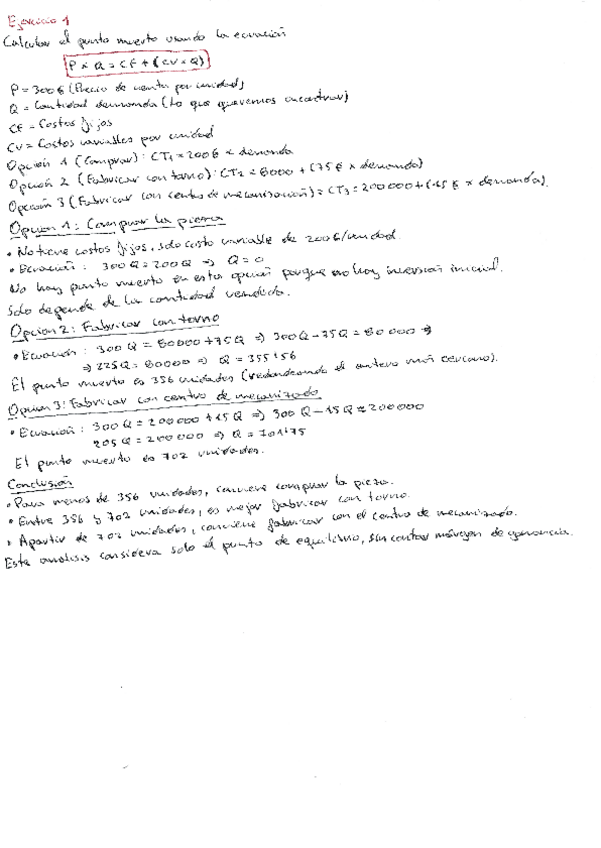 Ejercicio 1
Calcular el punto muerto usando la ecuación
P × Q = CF + (CV × Q)
P = 300€ (Precio de venta por unidad)
Q = Cantidad demanda (Lo que queremos encontrar)
CF = Costos fijos
CV = Costos variables por unidad
Opción 1 (Comprar): CT₁ = 200€ × demanda
Opción 2 (Fabricar con torno): CT₂ = 80000 + (75€ × demanda)
Opción 3 (Fabricar con centro de mecanización) = CT₃ = 200000 + (15€ × demanda).
Opción 1: Comprar la pieza
• No tiene costos fijos, solo costo variable de 200€/unidad.
• Ecuación: 300Q = 200Q ⇒ Q = 0
No hay punto muerto en esta opción porque no hay inversión inicial.
Solo depende de la cantidad vendida.
Opción 2: Fabricar con torno
• Ecuación: 300Q = 80000 + 75Q ⇒ 300Q - 75Q = 80000 ⇒
⇒ 225Q = 80000 ⇒ Q = 355'56
El punto muerto es 356 unidades (redondeando el entero más cercano).
Opción 3: Fabricar con centro de mecanizado
• Ecuación: 300Q = 200000 + 15Q ⇒ 300Q - 15Q = 200000
285Q = 200000 ⇒ Q = 701'75
El punto muerto es 702 unidades.
Conclusión
• Para menos de 356 unidades, conviene comprar la pieza.
• Entre 356 y 702 unidades, es mejor fabricar con torno.
• A partir de 702 unidades, conviene fabricar con el centro de mecanizado.
Este analisis considera solo el punto de equilibrio, sin contar márgen de ganancia.